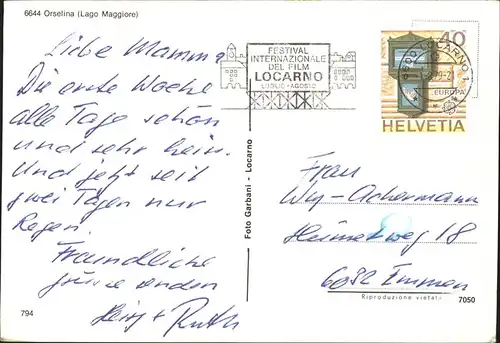 6644 Orselina (Lago Maggiore)
Liebe Mamma
Die erste Woche
alle Tage schön
und sehr heiss.
Und jetzt seit
zwei Tagen nur
Regen.
Freundliche
Grüsse senden
Ruth
794
Foto Garbani - Locarno
FESTIVAL
INTERNAZIONALE
DEL FILM
LOCARNO
LUGLIO - AGOSTO
40
6600 LOCARNO 1
EUROPA
HELVETIA
Frau
Wy-Achermann
Heimetweg 18
6032 Emmen
Riproduzione vietata
7050